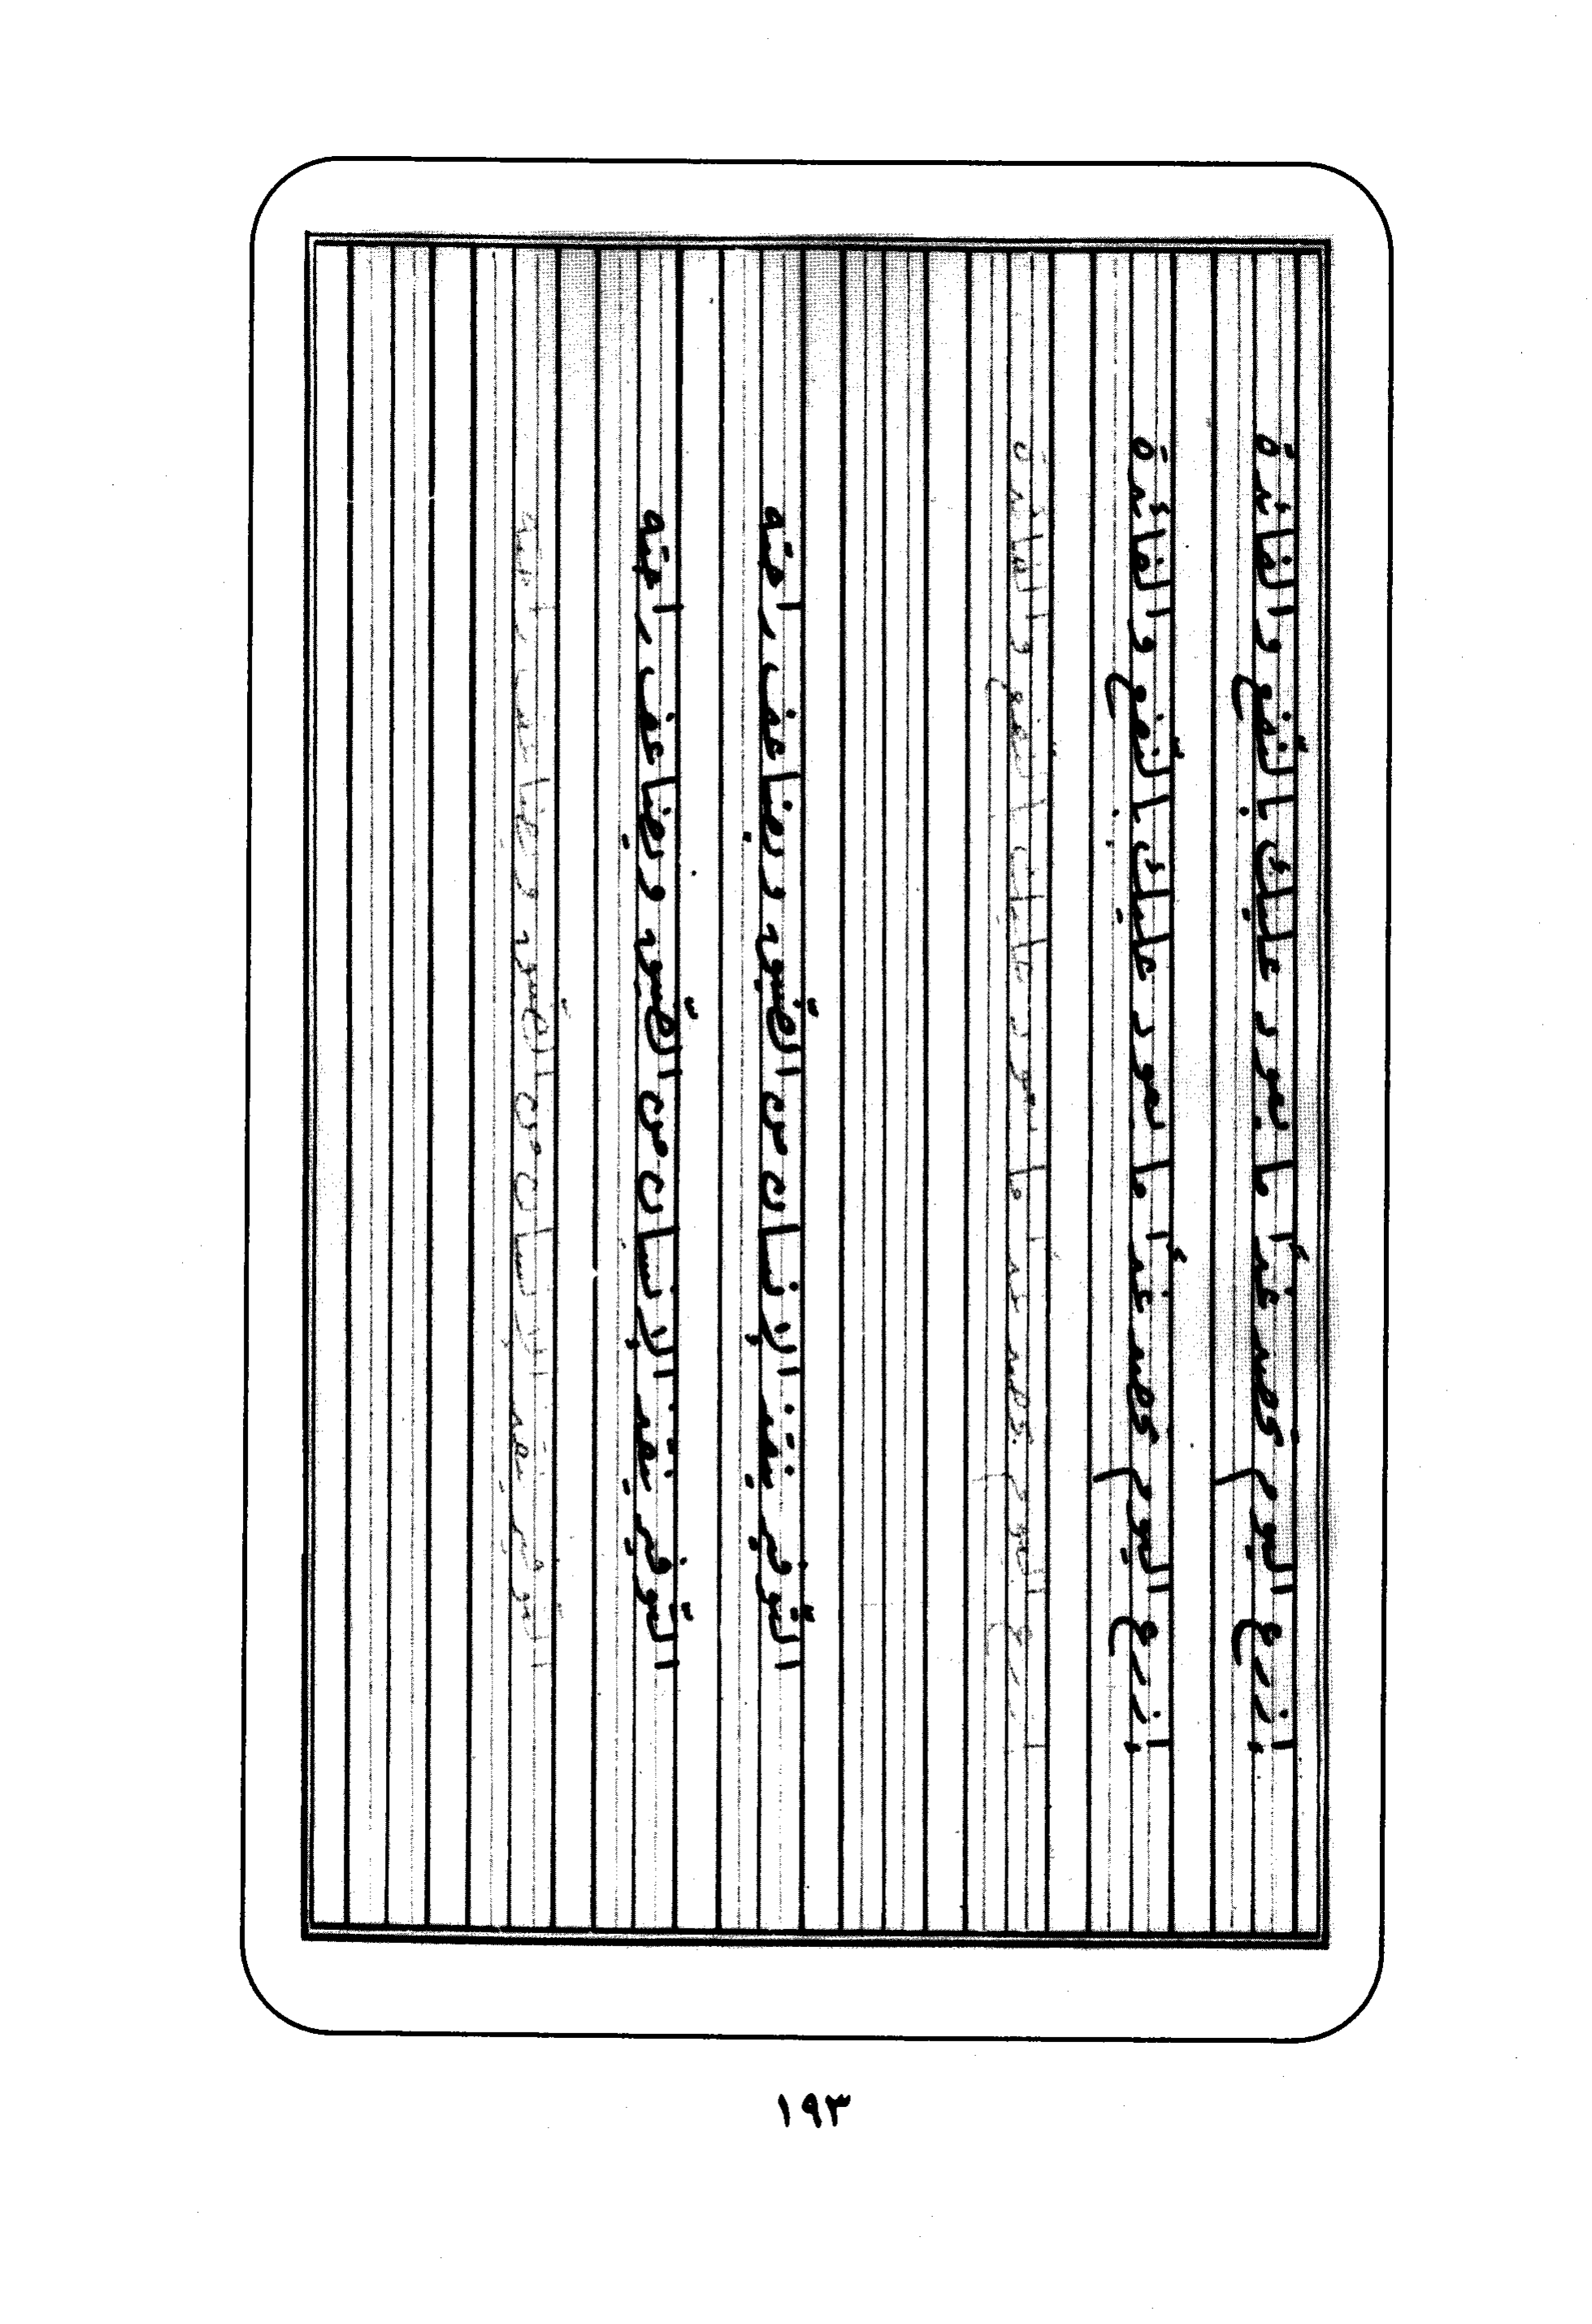 إزرع اليوم تحصد غدًا ما يعود عليك بالنّفع والفائدة
إزرع اليوم تحصد غدًا ما يعود عليك بالنّفع والفائدة
إزرع اليوم تحصد غدًا ما يعود عليك بالنّفع والفائدة
التّوفير ينقذ الإنسان من الضّيق ويضاعف راحته
التّوفير ينقذ الإنسان من الضّيق ويضاعف راحته
التّوفير ينقذ الإنسان من الضّيق ويضاعف راحته
١٩٣